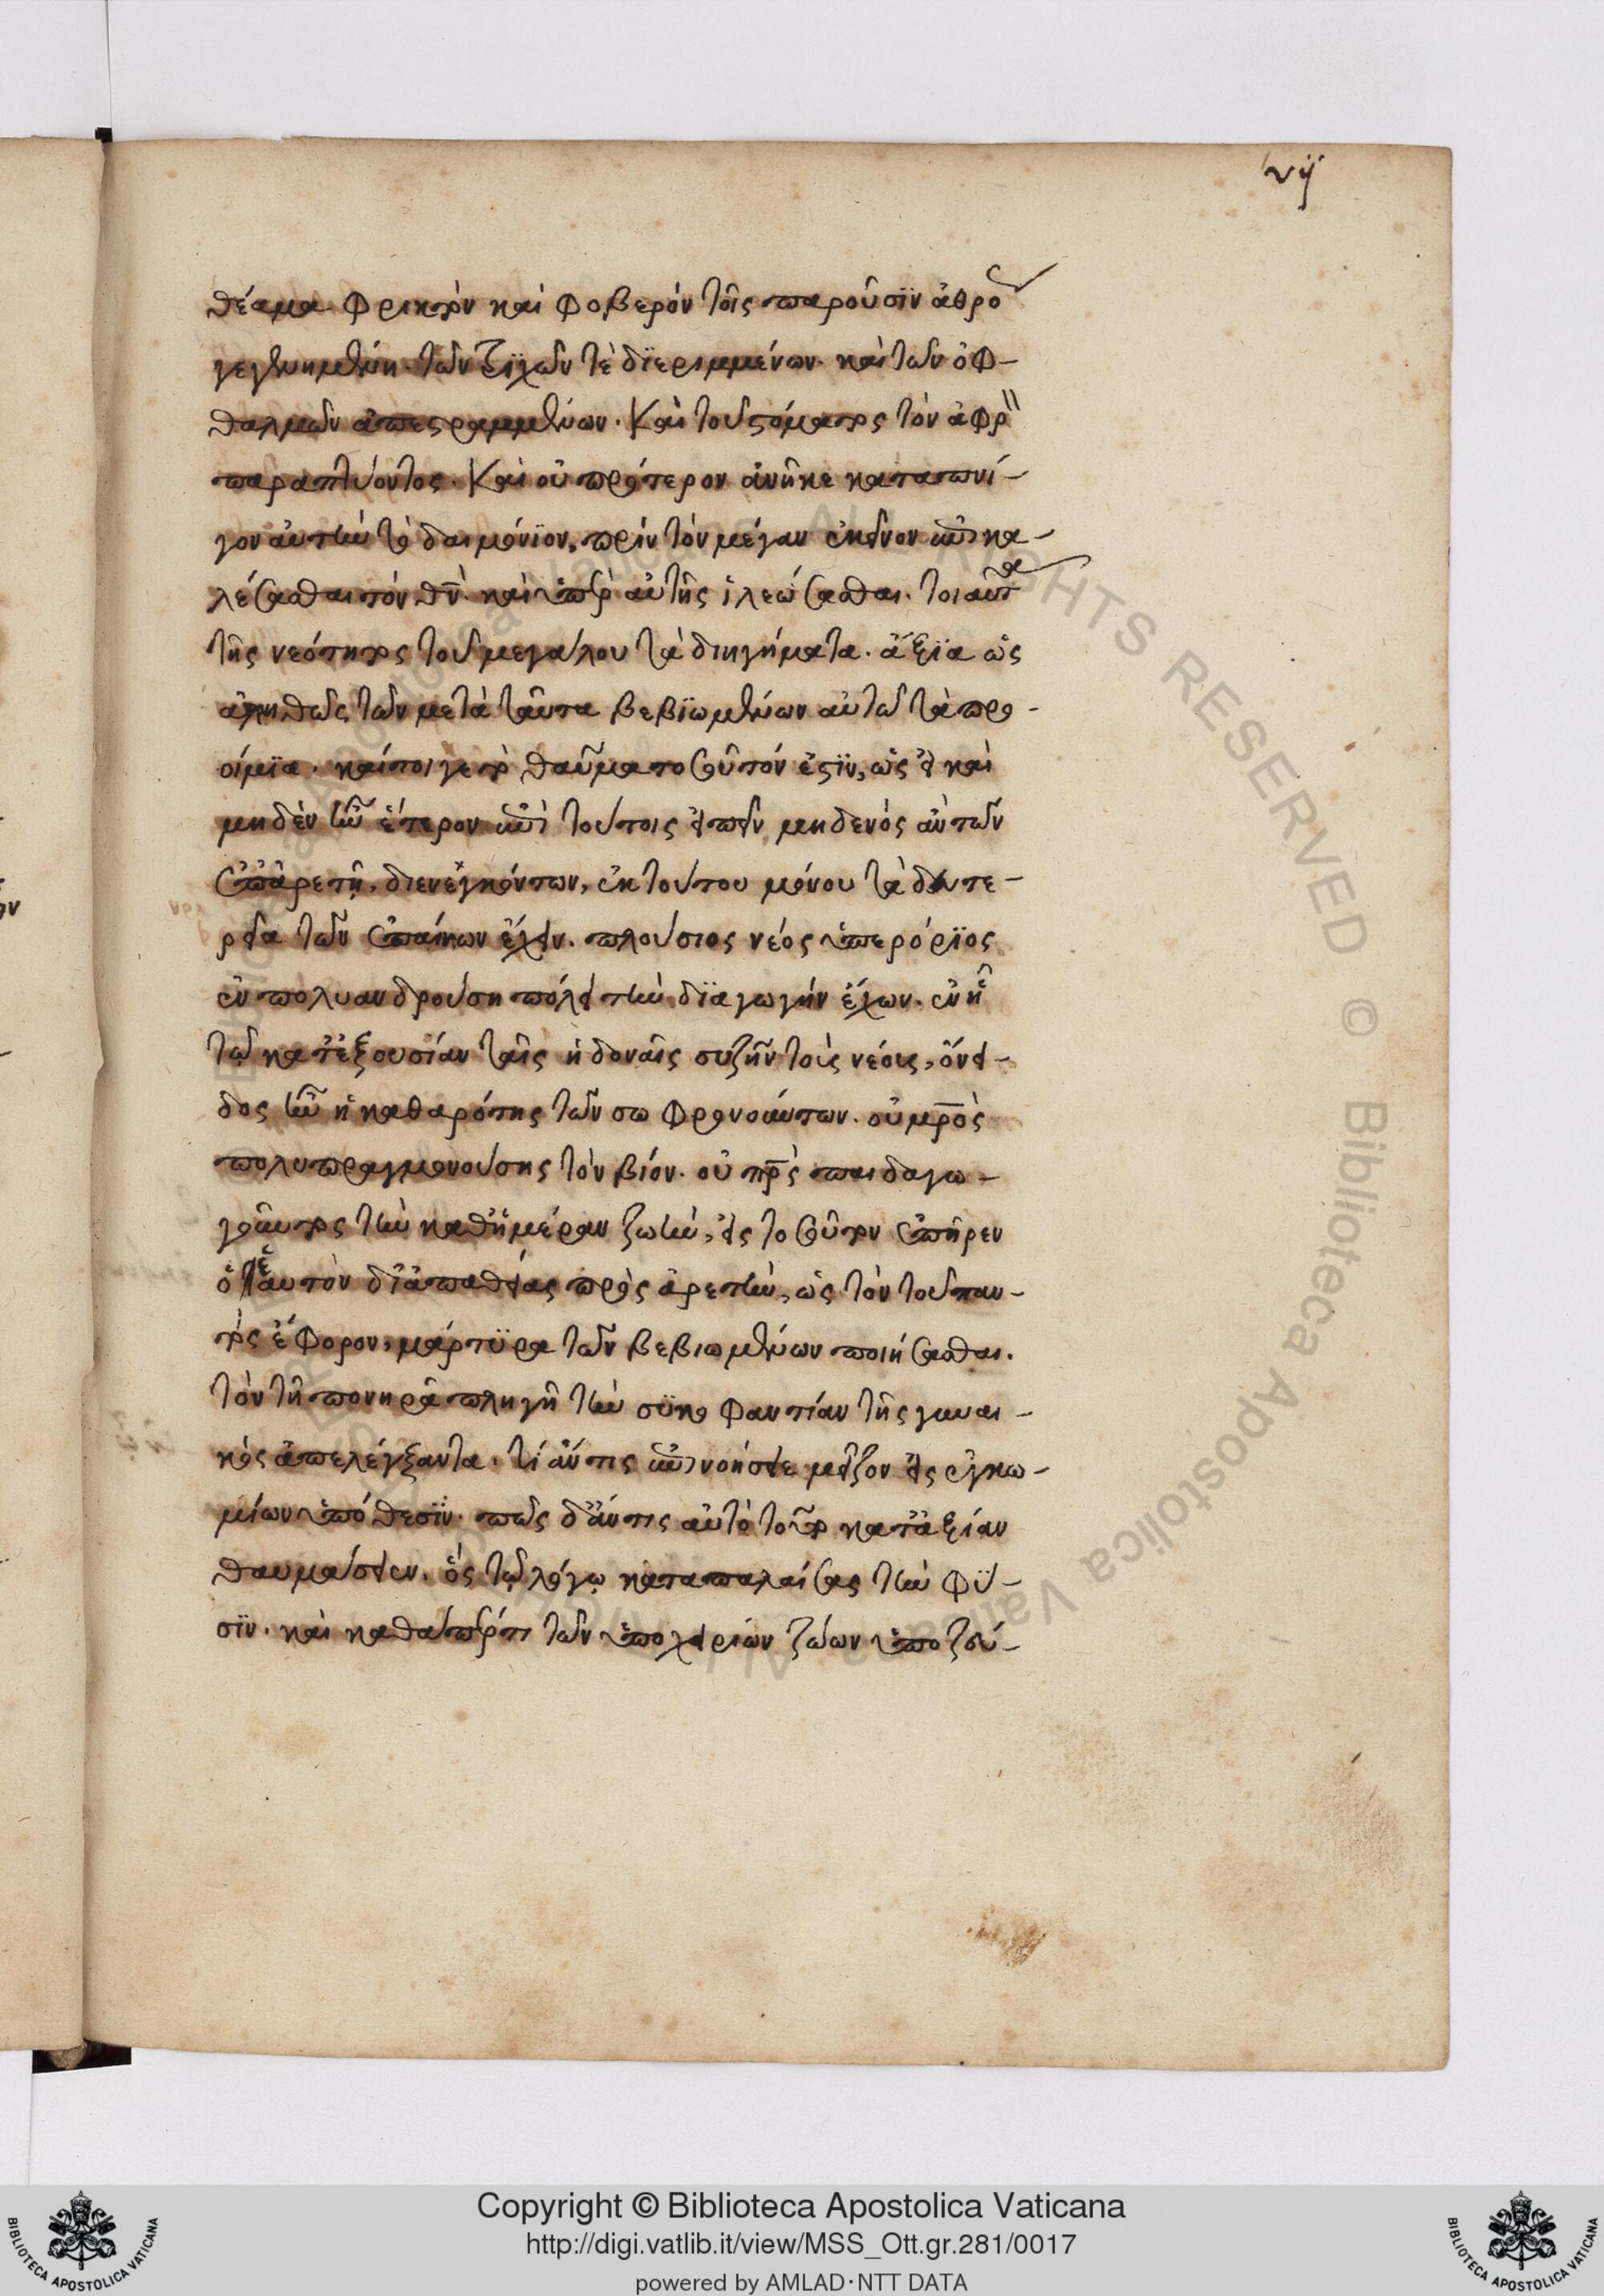 vij
θέαμα φρικτὸν καὶ φοβερὸν τοῖς παροῦσϊν ἀθρό
γεγενημένη. τῶν τριχῶν τὲ δϊεριμμένων. καὶ τῶν ὀφ-
θαλμῶν ἀπεστραμμένων. Καὶ τοῦ στόματος τὸν ἀφρὸν
παραπτύοντος. Καὶ οὐ πρότερον ἀνῆκε καταπνί-
γον αὐτὴν τὸ δαιμόνϊον, πρὶν τὸν μέγαν ἐκεῖνον ἐπικα-
λέσασθαι τὸν θν̄ καὶ ὑπὲρ αὐτῆς ἱλεώσασθαι. τοιαῦτα
τῆς νεότητος τοῦ μεγάλου τὰ διηγήματα. ἄξϊα ὡς
ἀληθῶς τῶν μετὰ ταῦτα βεβϊωμένων αὐτῶ τὰ προ-
οίμϊα. καίτοι γε τὸ θαῦμα τοσοῦτόν ἐστϊν, ὡς εἰ καὶ
μηδὲν ἦν ἕτερον ἐπὶ τούτοις εἰπεῖν, μηδενὸς αὐτῶν
ἐπ' ἀρετῆ, διενεγκόντων, ἐκ τούτου μόνου τὰ δευτε-
ρεῖα τῶν ἐπαίνων ἔχειν. πλούσιος νέος ὑπερόρϊος
ἐν πολυανδρούση πόλει τὴν δϊαγωγὴν ἔχων. ἐν ᾗ
τῷ κατ' ἐξουσίαν ταῖς ἡδοναῖς συζῆν τοὺς νέους, ὄνει-
δος ἦν ἡ καθαρότης τῶν σωφρονούντων. οὐ μρ̄ὸς
πολυπραγμονούσης τὸν βίον. οὐ πρ̄ς παιδαγω-
γοῦντος τὴν καθ' ἡμέραν ζωὴν, εἰς τοσοῦτον ἐπῆρεν
ἑαυτὸν δι' ἀπαθείας πρὸς ἀρετὴν, ὡς τὸν τοῦ παν-
τὸς ἔφορον, μάρτϋρα τῶν βεβιωμένων ποιήσασθαι.
τὸν τῆ πονηρᾶ πληγῆ τὴν σϋκοφαντίαν τῆς γυναι-
κὸς ἀπελέγξαντα. τί ἄν τις ἐπινοήσειε μεῖζον εἰς ἐγκω-
μίων ὑπόθεσϊν. πῶς δ' ἄν τις αὐτὸ τοῦτο κατ' ἀξίαν
θαυμάσειεν. ὃς τῷ λόγῳ καταπαλαίσας τὴν φΰ-
σϊν. καὶ καθάπέρ τι τῶν ὑποχειρίων ζώων ὑποζεύ-
Copyright © Biblioteca Apostolica Vaticana
http://digi.vatlib.it/view/MSS_Ott.gr.281/0017
powered by AMLAD·NTT DATA